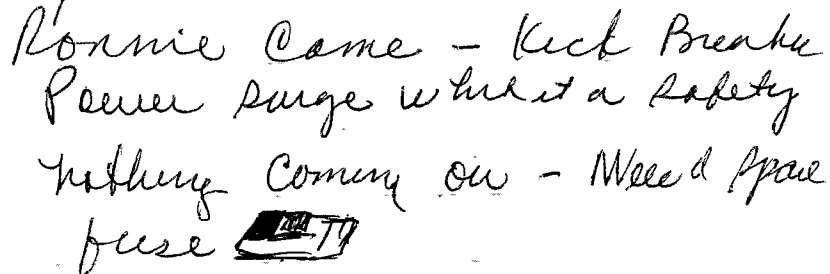 Ronnie Came - Kick Breaker
Power surge a safety
nothing Coming on - Need spare
fuse